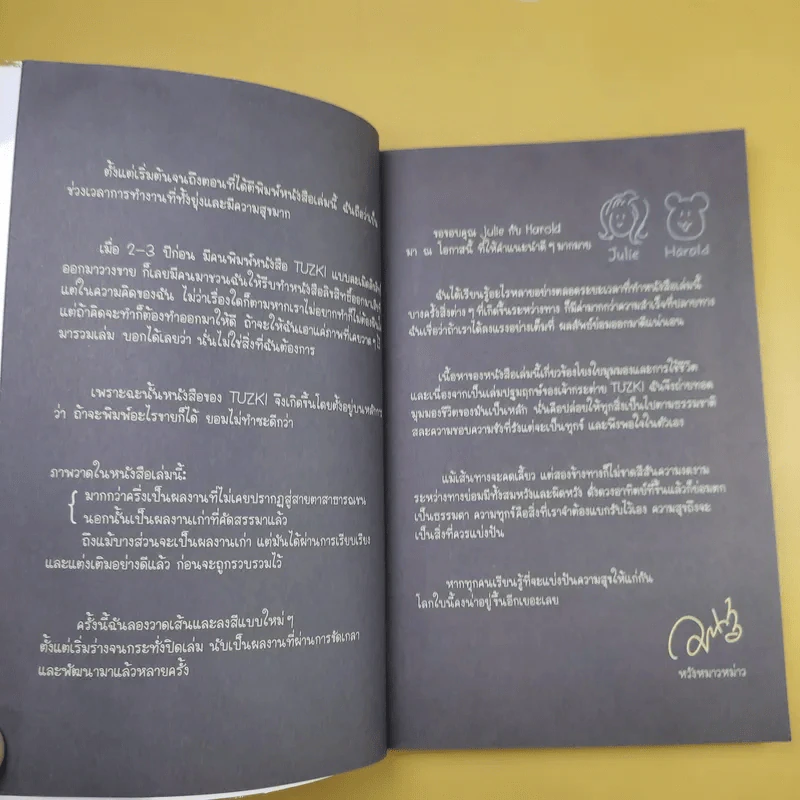 ตั้งแต่เริ่มต้นจนถึงตอนที่ได้ตีพิมพ์หนังสือเล่มนี้ ฉันถือว่าเป็น
ช่วงเวลาการทำงานที่ทั้งยุ่งและมีความสุขมาก
เมื่อ 2-3 ปีก่อน มีคนพิมพ์หนังสือ TUZKI แบบละเมิดลิขสิทธิ์
ออกมาวางขาย ก็เลยมีคนมาชวนฉันให้รีบทำหนังสือลิขสิทธิ์ออกมา
แต่ในความคิดของฉัน ไม่ว่าเรื่องใดก็ตามหากเราไม่อยากทำก็ไม่ต้อง
แต่ถ้าคิดจะทำก็ต้องทำออกมาให้ดี ถ้าจะให้ฉันเอาแค่ภาพที่เคยวาดๆ
มารวมเล่ม บอกได้เลยว่า นั่นไม่ใช่สิ่งที่ฉันต้องการ
เพราะฉะนั้นหนังสือของ TUZKI จึงเกิดขึ้นโดยตั้งอยู่บนหลักการ
ว่า ถ้าจะพิมพ์อะไรขายก็ได้ ยอมไม่ทำซะดีกว่า
ภาพวาดในหนังสือเล่มนี้:
มากกว่าครึ่งเป็นผลงานที่ไม่เคยปรากฏสู่สายตาสาธารณชน
นอกนั้นเป็นผลงานเก่าที่คัดสรรมาแล้ว
ถึงแม้บางส่วนจะเป็นผลงานเก่า แต่มันได้ผ่านการเรียบเรียง
และแต่งเติมอย่างดีแล้ว ก่อนจะถูกรวบรวมไว้
ครั้งนี้ฉันลองวาดเส้นและลงสีแบบใหม่ๆ
ตั้งแต่เริ่มร่างจนกระทั่งปิดเล่ม นับเป็นผลงานที่ผ่านการขัดเกลา
และพัฒนามาแล้วหลายครั้ง
ขอขอบคุณ Julie กับ Harold
มา ณ โอกาสนี้ ที่ให้คำแนะนำดีๆ มากมาย
Julie Harold
ฉันได้เรียนรู้อะไรหลายอย่างตลอดระยะเวลาที่ทำหนังสือเล่มนี้
บางครั้งสิ่งต่างๆ ที่เกิดขึ้นระหว่างทาง ก็มีค่ามากกว่าความสำเร็จที่ปลายทาง
ฉันเชื่อว่าถ้าเราได้ลงแรงอย่างเต็มที่ ผลลัพธ์ย่อมออกมาดีแน่นอน
เนื้อหาของหนังสือเล่มนี้เกี่ยวข้องโยงใยมุมมองและการใช้ชีวิต
และเนื่องจากเป็นเล่มปฐมฤกษ์ของเจ้ากระต่าย TUZKI ฉันจึงถ่ายทอด
มุมมองชีวิตของมันเป็นหลัก นั่นคือปล่อยให้ทุกสิ่งเป็นไปตามธรรมชาติ
สละความชอบความชังที่รังแต่จะเป็นทุกข์ และพึงพอใจในตัวเอง
แม้เส้นทางจะคดเคี้ยว แต่สองข้างทางก็ไม่ขาดสีสันความงดงาม
ระหว่างทางย่อมมีทั้งสมหวังและผิดหวัง ดั่งดวงอาทิตย์ที่ขึ้นแล้วก็ย่อมตก
เป็นธรรมดา ความทุกข์คือสิ่งที่เราจำต้องแบกรับไว้เอง ความสุขถึงจะ
เป็นสิ่งที่ควรแบ่งปัน
หากทุกคนเรียนรู้ที่จะแบ่งปันความสุขให้แก่กัน
โลกใบนี้คงน่าอยู่ขึ้นอีกเยอะเลย
หวังหมาวหม่าว